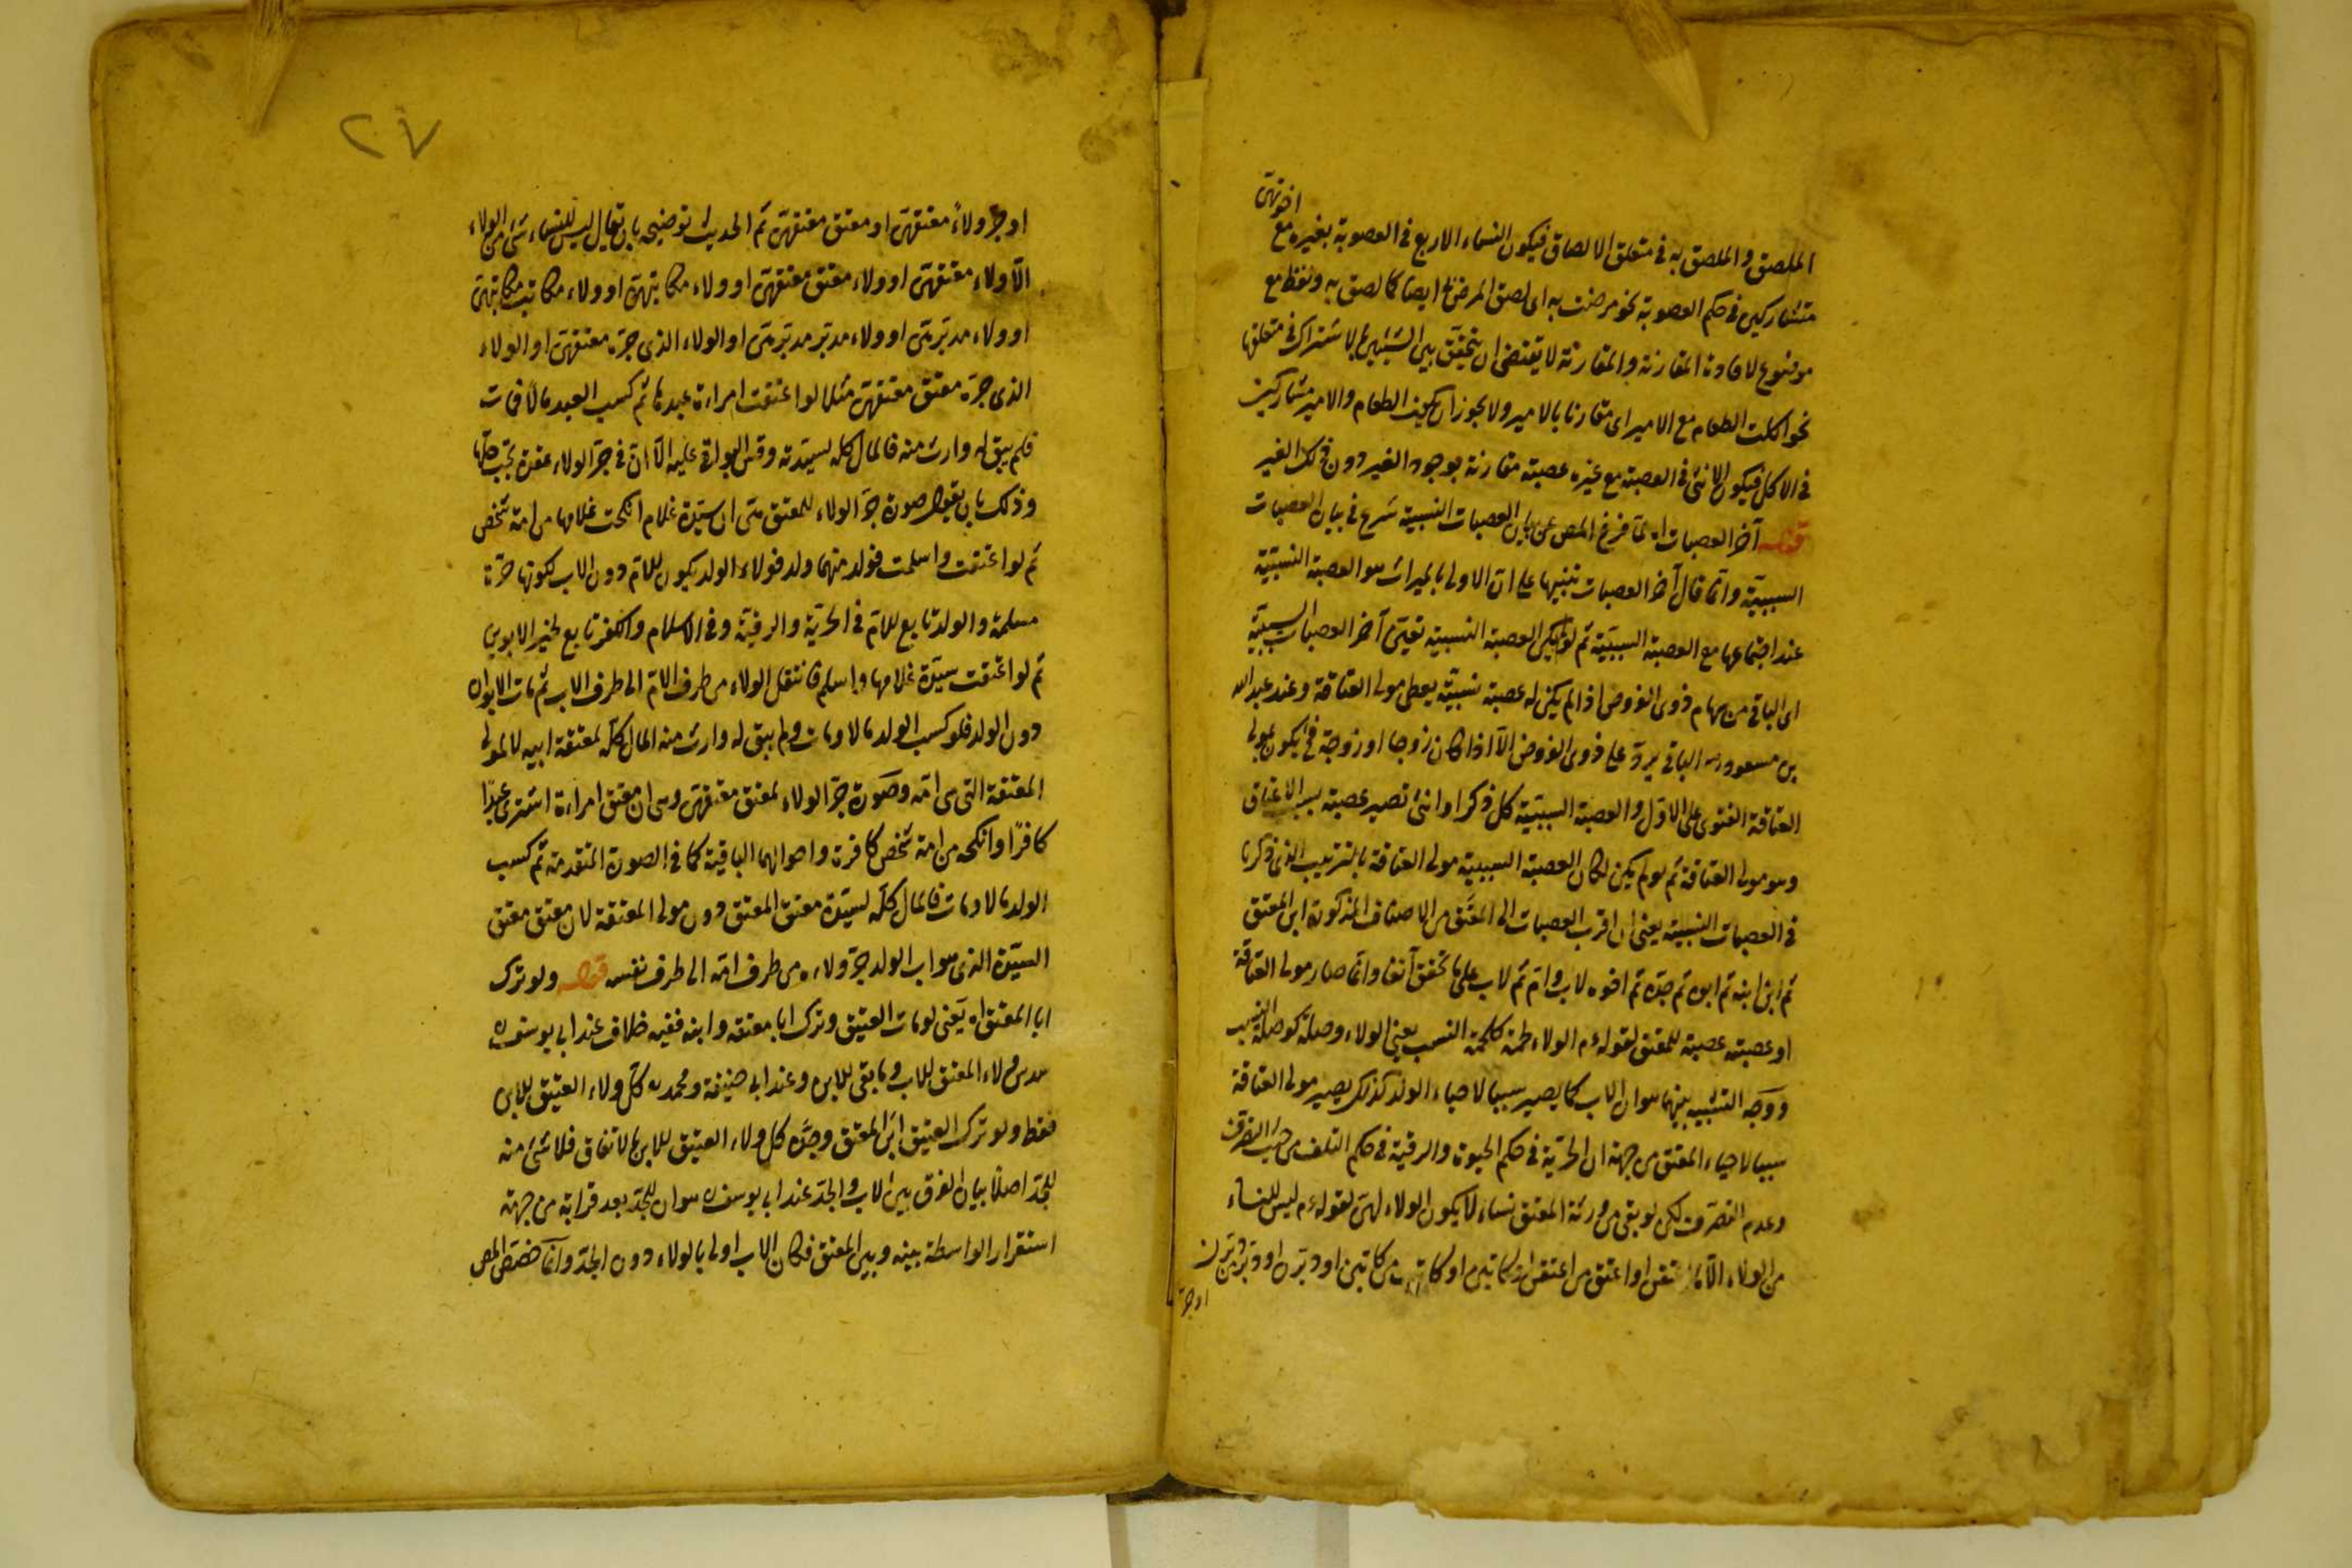 اخوتهن
الملصق والملصق به في متعلق الالصاق فيكون النساء الاربع في العصوبة بغيره مع
متشاركين في حكم العصوبة نحو مرضت به اى لصق المرض ايضا كما لصق به ولفظ مع
موضوع لافادة المقارنة والمقارنة لا يقتضى ان يتحقق بين الشيئين بالاشتراك في متعلقها
نحو اكلت الطعام مع الامير اى مقارنا بالامير ولا يجوز ان يكون الطعام والامير مشاركين
في الاكل فيكون الانثى في العصبة مع غيره عصبة مقارنة بوجود الغير دون ذلك الغير
قوله آخر العصبات اه لما فرغ المص عن بيان العصبات النسبية شرع في بيان العصبات
السببية وانما قال آخر العصبات تنبيها على ان الاولى بالميراث هو العصبة النسبية
عند اجتماعها مع العصبة السببية ثم لو لم يكن العصبة النسبية تعين آخر العصبات السببية
اى الباقى من سهام ذوى الفروض اذا لم يكن له عصبة نسبية يعطى مولى العتاقة وعند عبد الله
بن مسعود رض الباقى يرد على ذوى الفروض الا اذا كان زوجا او زوجة فح يكون لمولى
العتاقة الفتوى على الاول والعصبة السببية كل ذكر او انثى تصير عصبة بسبب الاعتاق
وهو مولى العتاقة ثم لو لم يكن لكان العصبة السببية مولى العتاقة بالترتيب الذى ذكرنا
في العصبات النسبية يعنى ان اقرب العصبات الى المعتق من الاصناف المذكورة ابن المعتق
ثم ابن ابنه ثم ابوه ثم جده ثم اخوه لاب وام ثم لاب على ما تحقق آنفا وانما صار مولى العتاقة
او عصبته عصبة للمعتق لقوله ءم الولاء لحمة كلحمة النسب يعنى الولاء وصلة كوصلة النسب
ووجه التشبيه بينهما هو ان الاب كما يصير سببا لاحياء الولد كذلك يصير مولى العتاقة
سببا لاحياء المعتق من جهة ان الحرية في حكم الحيوة والرقية في حكم التلف من حيث التصرف
وعدم التصرف لكن لو بقى من ورثة المعتق نساء لا يكون الولاء لهن لقوله ءم ليس للنساء
من الولاء الا ما اعتقن او اعتق من اعتقن او كاتبن او كاتب من كاتبن او دبرن او دبر من دبرن
او جر
٢٧
او جر ولاءً معتقهن او معتق معتقهن ثم الحديث توضيحه بان يقال ليس للنساء شئ من الولاء
الا ولاء معتقهن او ولاء معتق معتقهن او ولاء مكاتبهن او ولاء مكاتب مكاتبهن
او ولاء مدبرهن او ولاء مدبر مدبرهن او الولاء الذى جره معتقهن او الولاء
الذى جره معتق معتقهن مثلا لو اعتقت امراءة عبدها ثم كسب العبد مالا فمات
فلم يبق له وارث منه فالمال كله لسيدته وقس البواقى عليه الا ان في جر الولاء عقدة يجب حلها
وذلك بان يقول صورة جر الولاء للمعتق هى ان سيدة غلام انكحت غلامها من امة شخص
ثم لو اعتقت واسلمت فولد منهما ولد فولاء الولد يكون للام دون الاب لكونها حرة
مسلمة والولد تابع للام في الحرية والرقية وفي الاسلام والكفر تابع لخير الابوين
ثم لو اعتقت سيدة غلامها واسلم فانتقل الولاء من طرف الام الى طرف الاب ثم مات الابوان
دون الولد فلو كسب الولد مالا ومات ولم يبق له وارث منه المال كله لمعتقة ابيه لا لمولى
المعتقة التى هى امه وصورة جر الولاء لمعتق معتقهن وهى ان معتق امراءة اشترى عبدًا
كافرًا وانكحه من امة شخص كافرة واحوالهما الباقية كما في الصورة المتقدمة ثم كسب
الولد مالا ومات فالمال كله لسيدة معتق المعتق دون مولى المعتقة لان معتق معتق
السيدة الذى هو اب الولد جر ولاءه من طرف امه الى طرف نفسه قوله ولو ترك
ابا المعتق اه يعنى لو مات العتيق وترك ابا معتقه وابنه ففيه خلاف عند ابى يوسف ره
سدس ولاء المعتق للاب وما بقى للابن وعند ابى حنيفة ومحمد ره كل ولاء العتيق للابن
فقط ولو ترك العتيق ابن المعتق وجده كل ولاء العتيق للابن بالاتفاق فلا شئ منه
للجد اصلا بيان الفرق بين الاب والجد عند ابى يوسف ره هو ان للجد بعد قرابة من جهة
استقرار الواسطة بينه وبين المعتق فكان الاب اولى بالولاء دون الجد وانما خصص المص